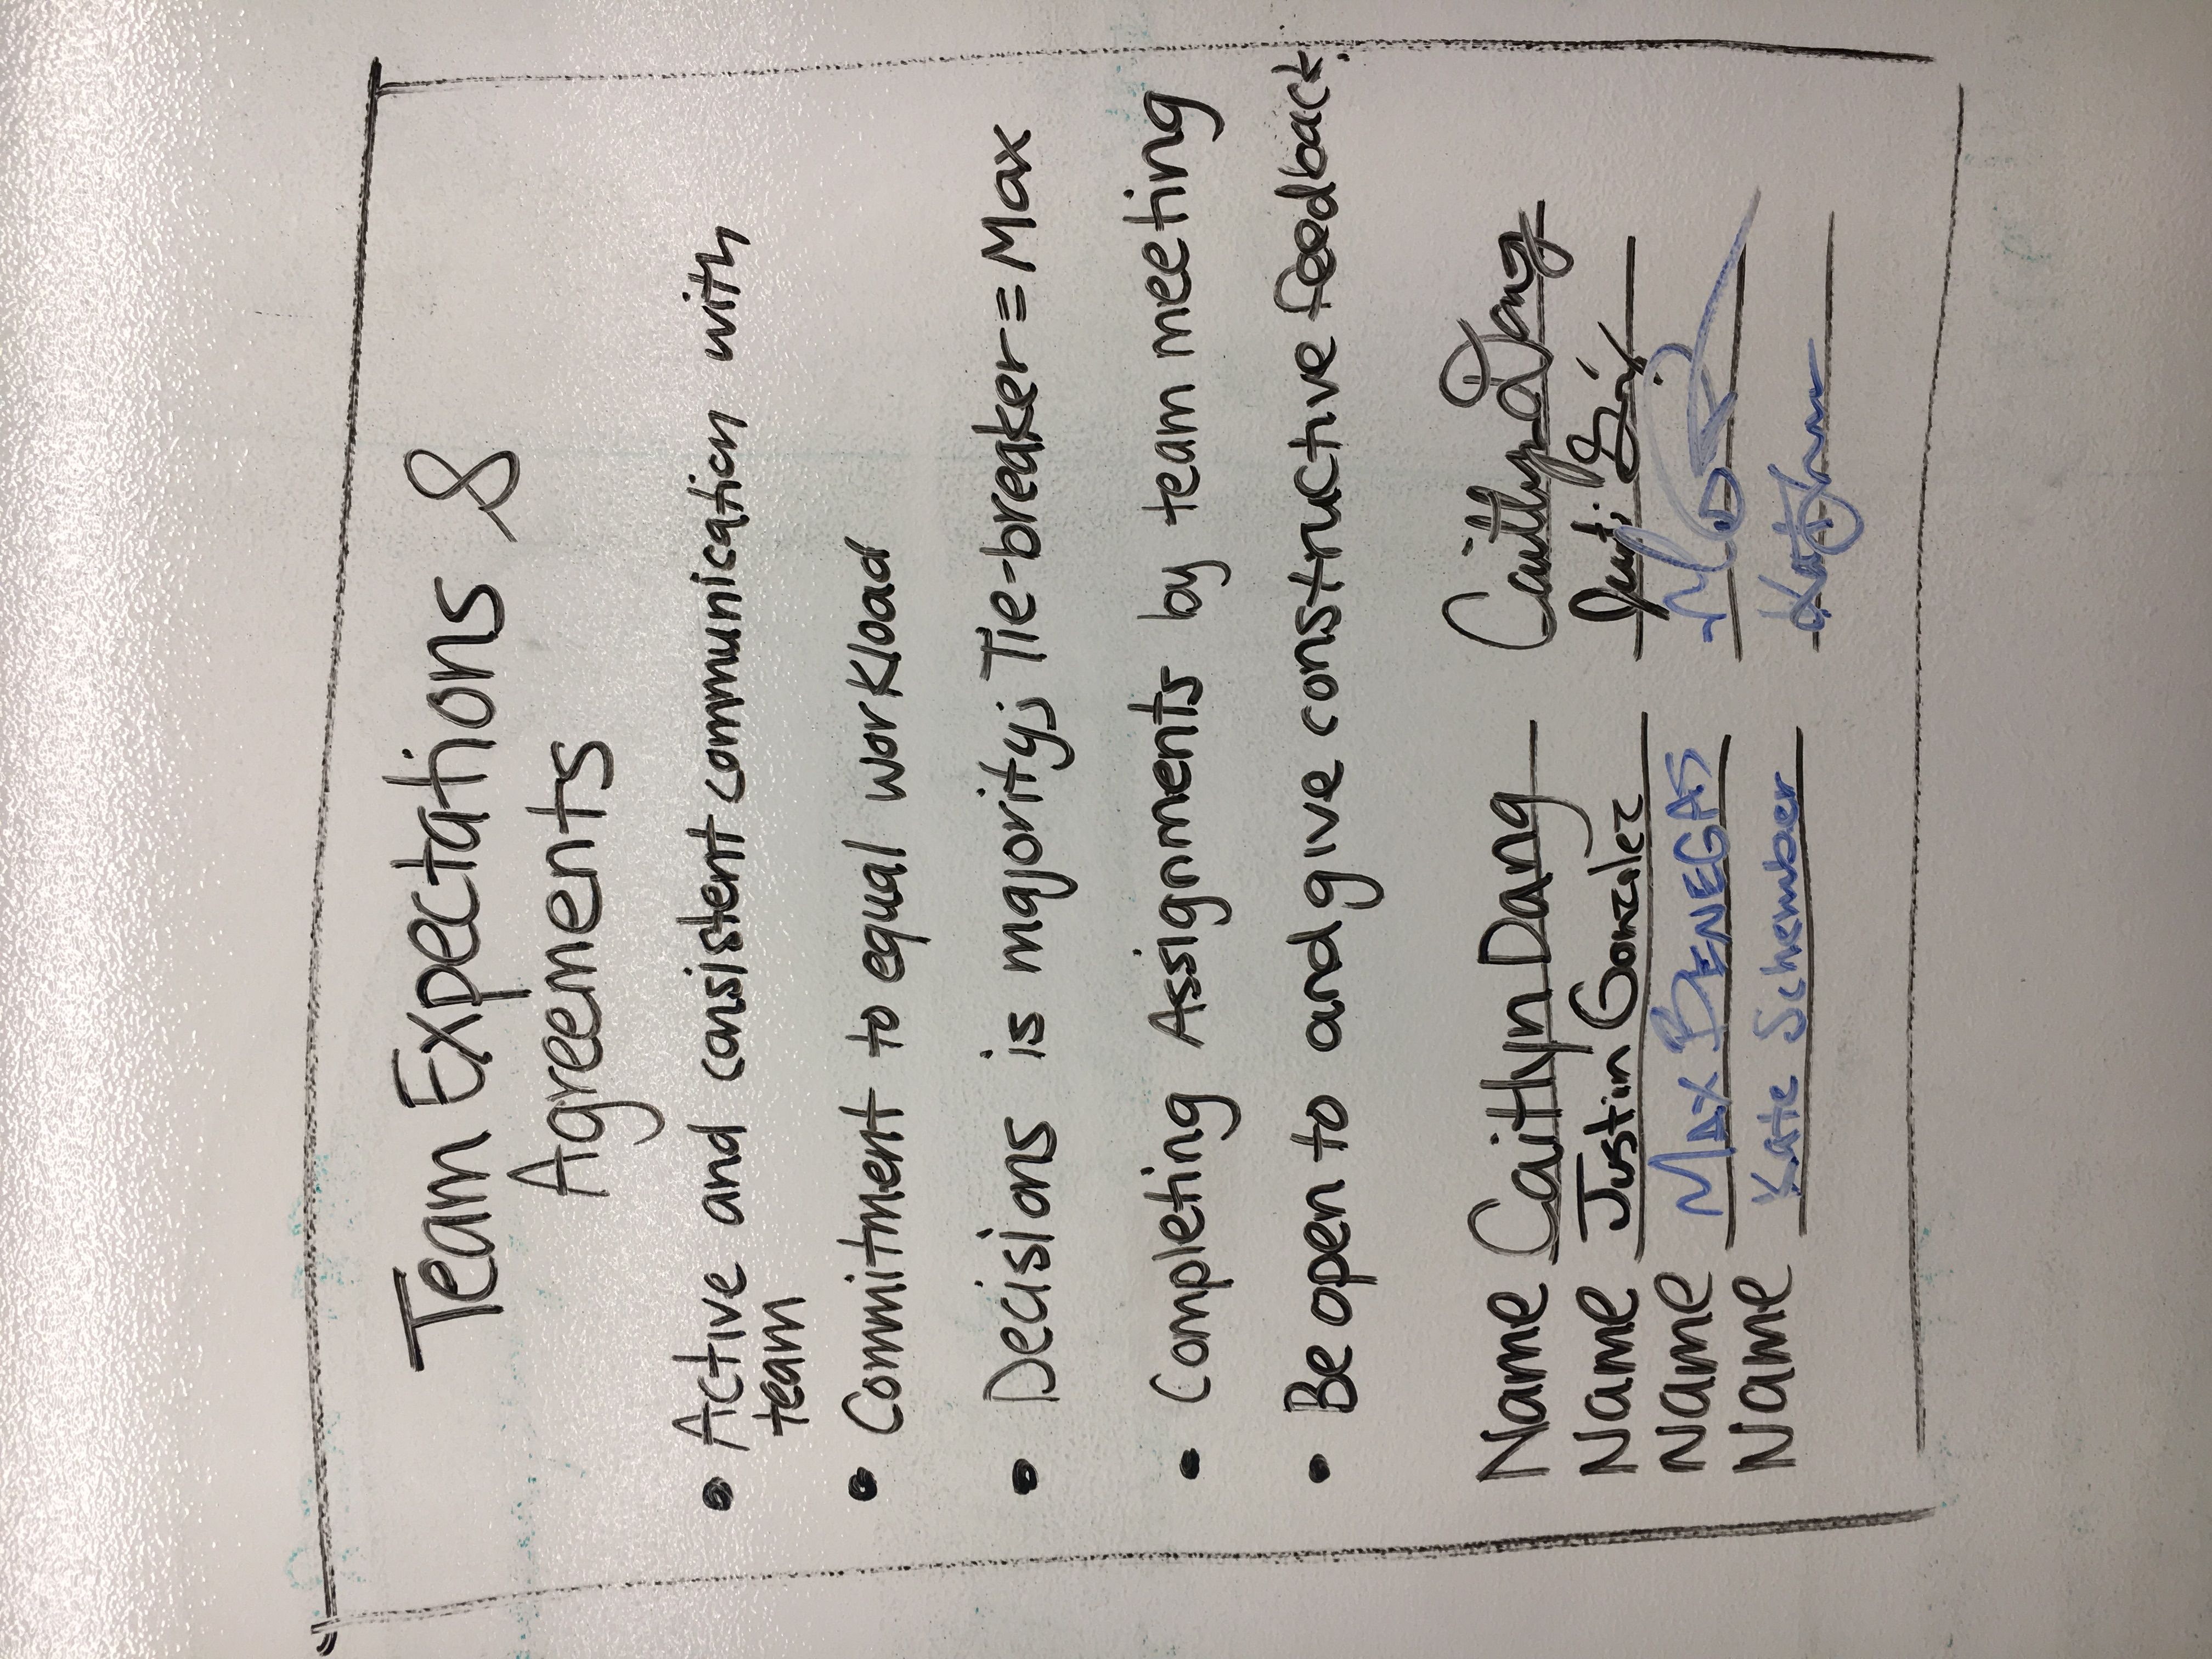 Team Expectations &
Agreements
• Active and consistent communication with
team
• Commitment to equal workload
• Decisions is majority; Tie-breaker = Max
• Completing Assignments by team meeting
• Be open to and give constructive feedback.
Name Caitlyn Dang Caitlyn Dang
Name Justin Gonzalez
Name MAX BENEGAS
Name Kate Schember